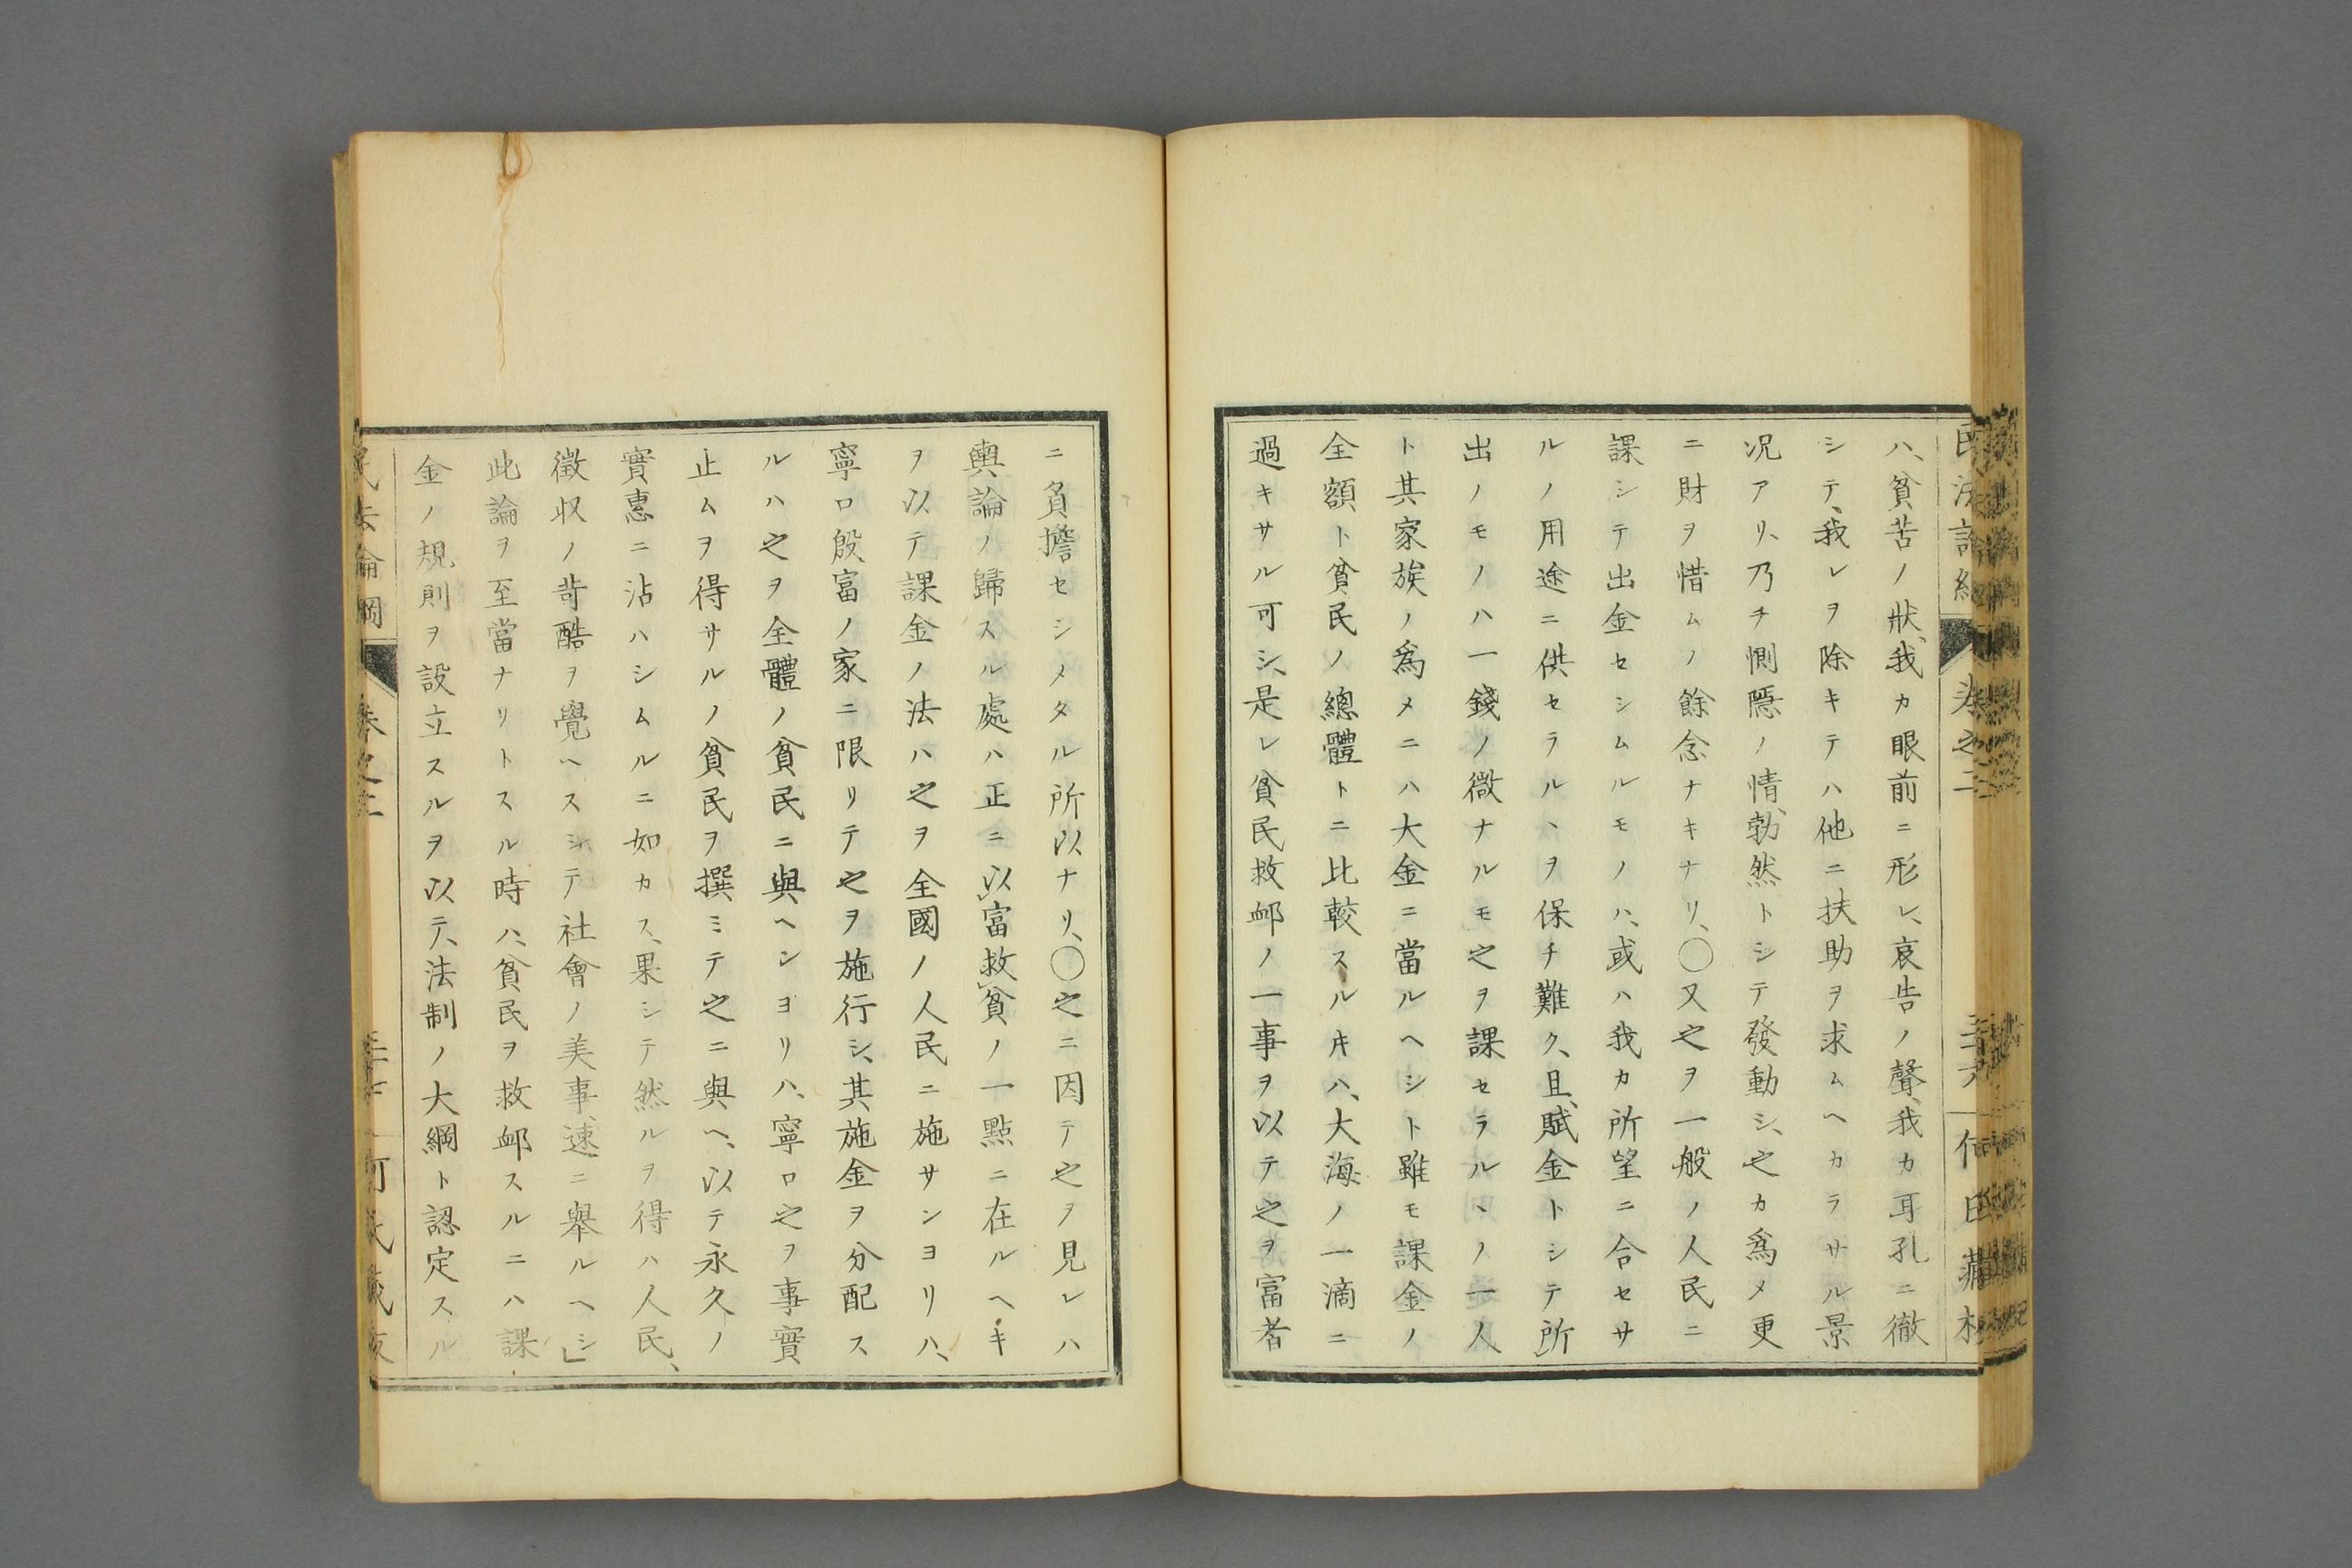 ハ、貧苦ノ狀、我カ眼前ニ形レ、哀告ノ聲、我カ耳孔ニ徹
シテ、我レヲ除キテハ他ニ扶助ヲ求ムヘカラサル景
况アリ、乃チ惻隱ノ情、勃然トシテ發動シ、之カ爲メ更
ニ財ヲ惜ムノ餘念ナキナリ、〇又之ヲ一般ノ人民ニ
課シテ出金セシムルモノハ、或ハ我カ所望ニ合セサ
ルノ用途ニ供セラルヽヲ保チ難ク、且、賦金トシテ所
出ノモノハ一錢ノ微ナルモ之ヲ課セラルヽノ一人
ト其家族ノ爲メニハ大金ニ當ルヘシト雖モ課金ノ
全額ト貧民ノ總體トニ比較スルキハ、大海ノ一滴ニ
過キサル可シ、是レ貧民救邮ノ一事ヲ以テ之ヲ富者
ニ負擔セシメタル所以ナリ、〇之ニ因テ之ヲ見レハ
輿論ノ歸スル處ハ正ニ以富救貧ノ一點ニ在ルヘキ
ヲ以テ課金ノ法ハ之ヲ全國ノ人民ニ施サンヨリハ、
寧ロ殷富ノ家ニ限リテ之ヲ施行シ、其施金ヲ分配ス
ルハ之ヲ全體ノ貧民ニ與ヘンヨリハ、寧ロ之ヲ事實
止ムヲ得サルノ貧民ヲ撰ミテ之ニ與ヘ、以テ永久ノ
實惠ニ沾ハシムルニ如カス、果シテ然ルヲ得ハ人民、
徵収ノ苛酷ヲ覺ヘスシテ社會ノ美事、速ニ舉ルヘシ」
此論ヲ至當ナリトスル時ハ、貧民ヲ救邮スルニハ課
金ノ規則ヲ設立スルヲ以テ、法制ノ大綱ト認定スル